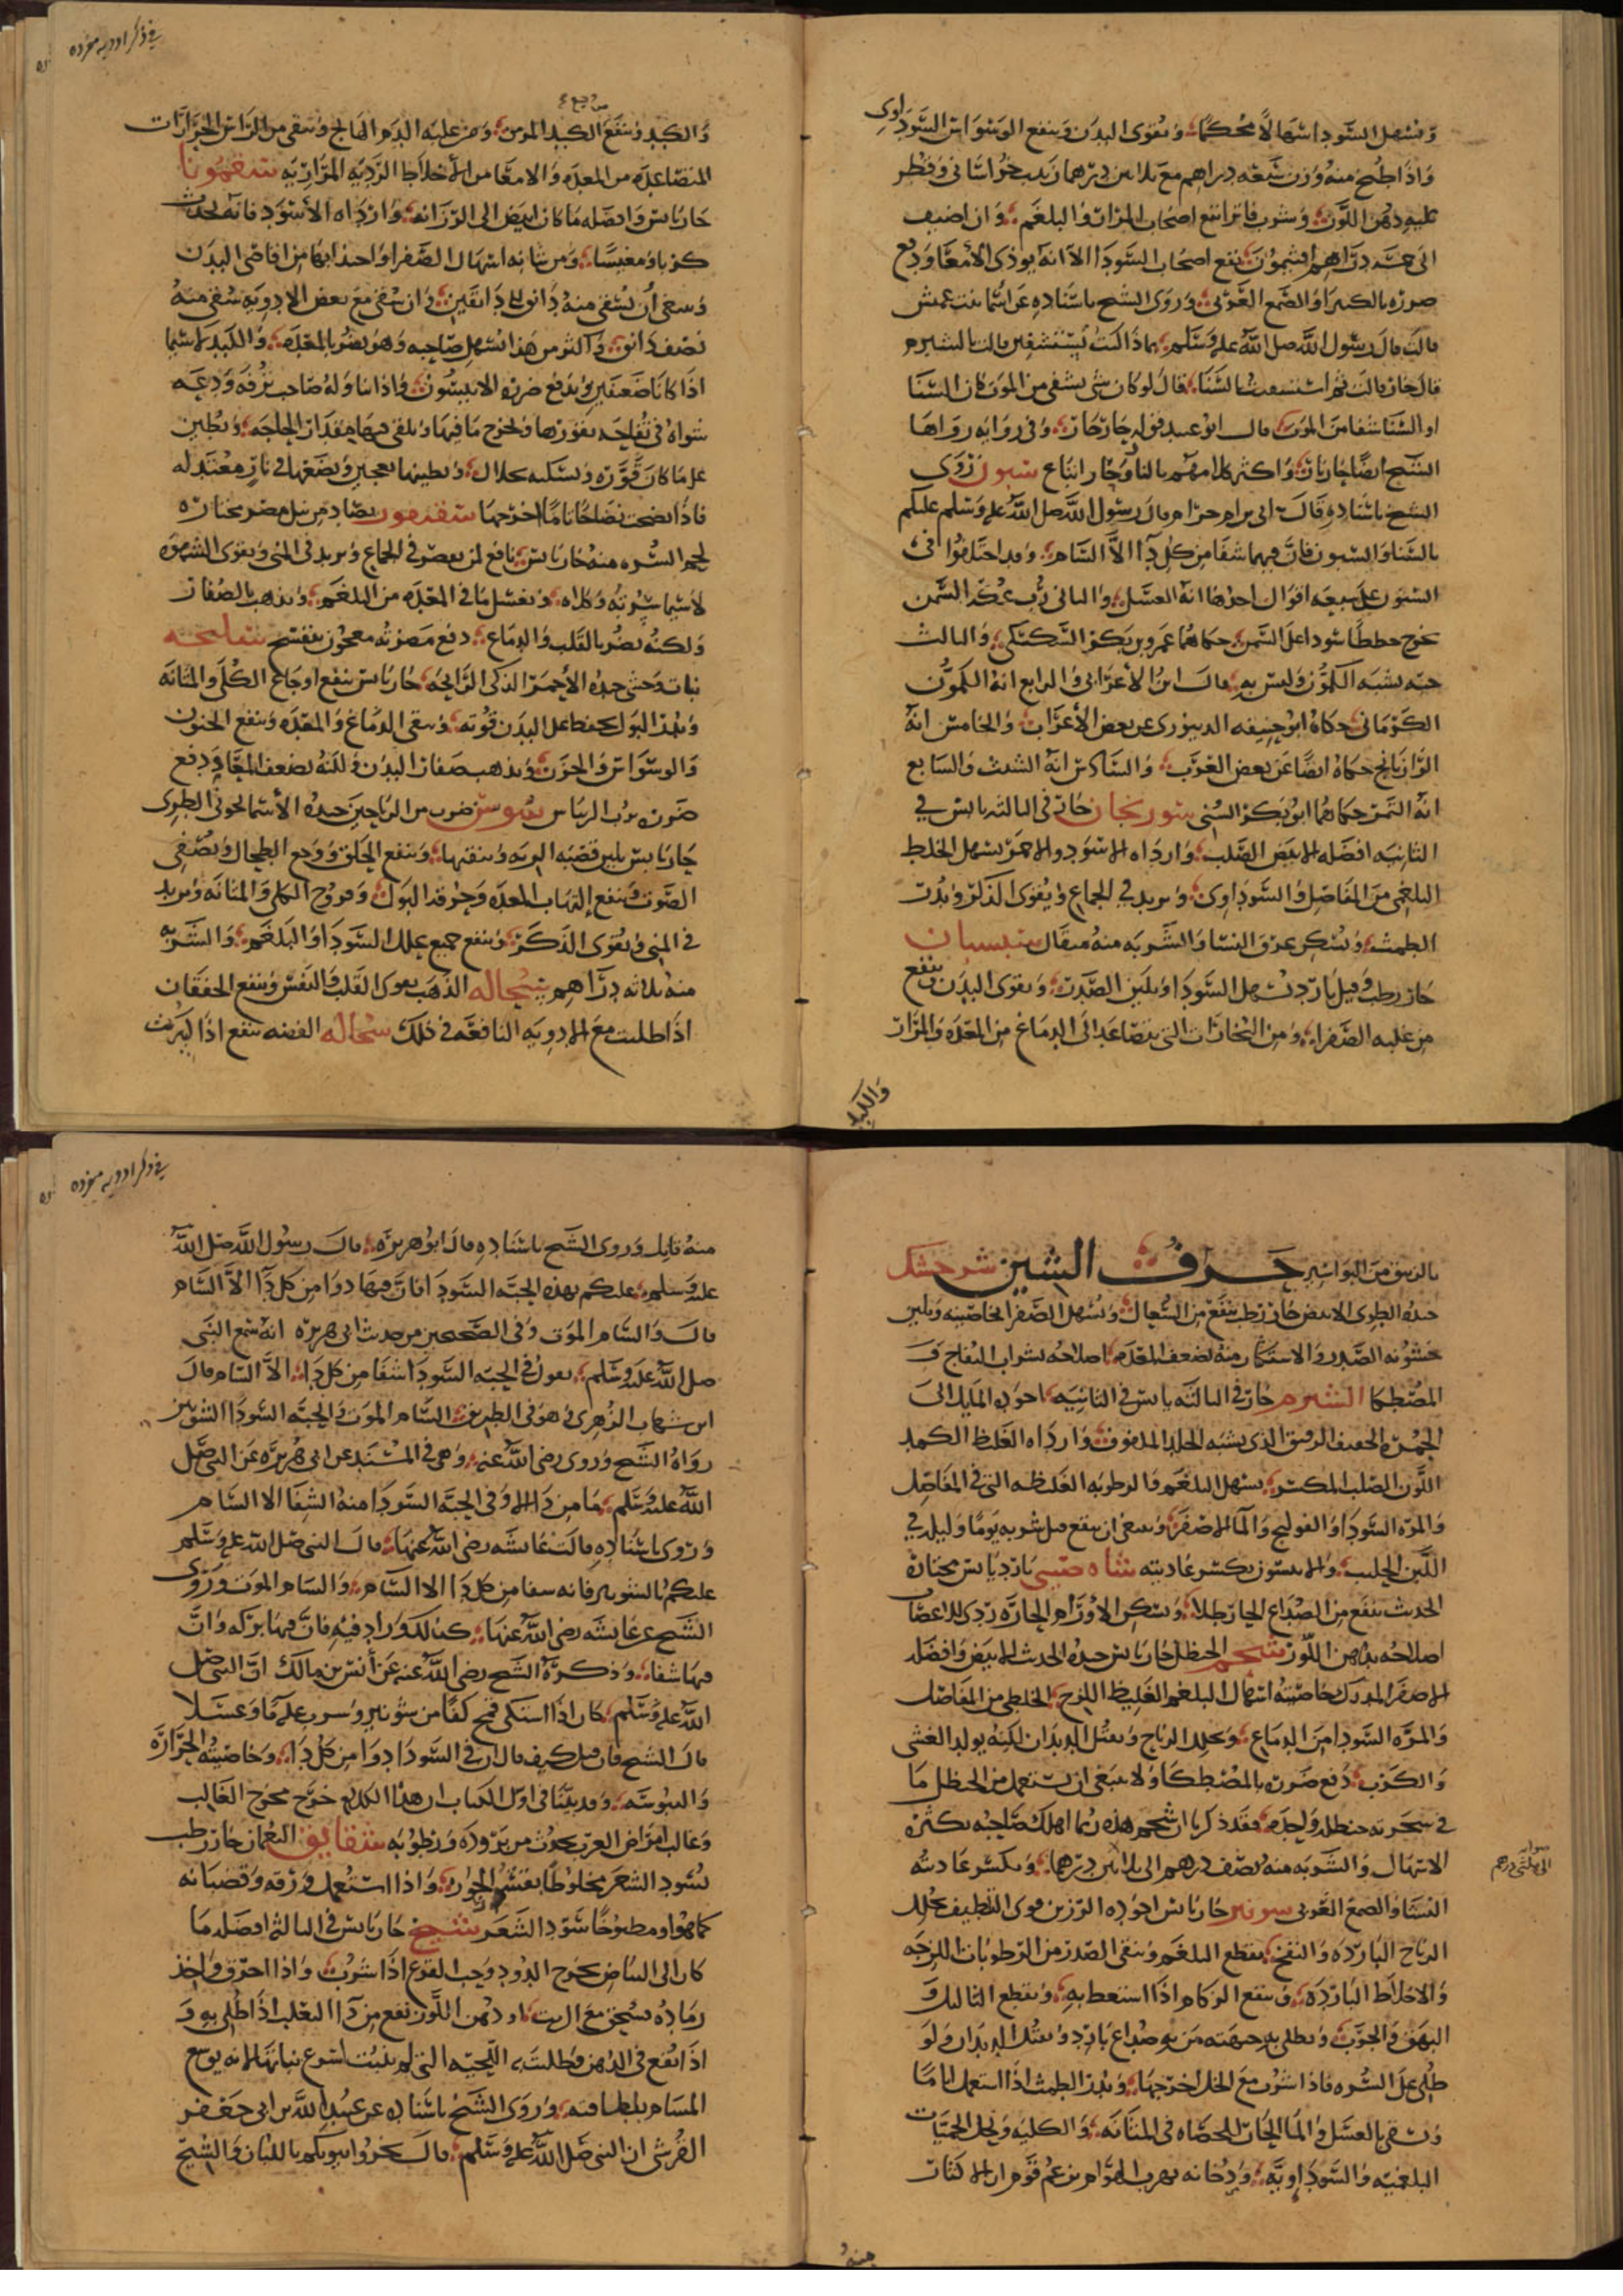 ويسهل السودا اسهالا محكما ويقوى البدن وينفع الوسواس السوداوى
واذا طبخ منه وزن سبعه دراهم مع ثلاثين درهما زبيب خراسانى وقطر
عليه دهن اللوز وشرب فاترا نفع اصحاب المرار والبلغم وان اضيف
الى عشره دراهم افتيمون نفع اصحاب السودا الا انه يوذى الامعا ودفع
ضرره بالكثيرا والصمغ العربى وروى الشيخ باسناده عن اسما بنت عميس
قالت قال رسول الله صلى الله عليه وسلم بماذا كنت تستشفين قالت بالشبرم
قال حار قالت ثم استشفيت بالسنا فقال لو كان شى يشفى من الموت كان السنا
او السنا شفا من الموت قال ابو عبيد قوله حار حار وفى روايه رواها
الشيخ ايضا حار يار واكثر كلامهم باليا وحار اتباع سنوت روى
الشيخ باسناده قال ابى بن ام حرام قال رسول الله صلى الله عليه وسلم عليكم
بالسنا والسنوت فان فيهما شفا من كل دا الا السام وقد اختلفوا فى
السنوت على سبعه اقوال احدها انه العسل والثانى رب عكه السمن
يخرج خططا سودا على السمن حكاهما عمرو بن بكر السكسكى والثالث
حبه يشبه الكمون وليس به قال ابن الاعرابى والرابع انه الكمون
الكرمانى حكاه ابو حنيفه الدينورى عن بعض الاعراب والخامس انه
الرازيانج حكاه ايضا عن بعض العرب والسادس انه الشبث والسابع
انه التمر حكاهما ابو بكر السنى سورنجان حار فى الثالثه يابس فى
الثانيه افضله الابيض الصلب وارداه الاسود والاحمر يسهل الخلط
البلغمى من المفاصل والسوداوى ويزيد فى الجماع ويقوى الذكر ويدر
الطمث ويسكن عرق النسا والشربه منه مثقال سبستان
حار رطب وقيل بارد يسهل السودا ويلين الصدر ويقوى البدن وينفع
من غلبه الصفرا ومن البخارات التى تتصاعد الى الدماغ من المعده والمرار
والكبد
فى ذكر ادويه مفرده
والكبد وينفع الكبد المومن وجع ومن غلبه الدم الهالج وينقى من الراس الحرارات
المتصاعده من المعده والامعا من الاخلاط الرديه المراريه سقمونيا
حار يابس وافضله ما كان ابيض الى الزرقه وارداه الاسود فانه يحدث
كربا ومغصا ومن شانه اسهال الصفرا واجتذابها من اقاصى البدن
وينبغى ان يسقى منه دانق الى دانقين وان سقى مع بعض الادويه سقى منه
نصف دانق واكثر من هذا يسهل صاحبه وهو يضر بالمعده والكبد لاسيما
اذا كانا ضعيفين ويدفع ضرره الانيسون واذا تناوله صاحب ترفه ودعه
شواه فى تفاحه يقورها ويخرج ما فيها ويلقى فيها مقدار الحاجه ويطبق
عليها ما كان قوره ويسكه بخلال ويطينها بعجين ويضعها فى نار معتدله
فاذا نضجت نضاجا تاما اخرجها سقنقور يصاد من نيل مصر مختاره
لحم السره منه حار يابس نافع لمن يعصر فى الجماع ويزيد فى المنى ويقوى الشهوه
لاسيما سرته وكلاه ويغسل ما فى المعده من البلغم ويذهب بالصفار
ولكنه يضر بالقلب والدماع دفع مضرته معجون بنفسج
نبات وحشى جيده الاحمر الذكى الرايحه حار يابس ينفع اوجاع الكلى والمثانه
ويدر البول يحفظ على البدن قوته وينقى الدماغ والمعده وينفع الجنون
والوسواس والحزن ويذهب صفار البدن ولكنه يضعف المعا ودفع
ضرره برب الرياس سوسن ضرب من الرياحين جيده الاسمانجونى الطرى
حار يابس يلين قصبه الريه وينقيها وينفع الحلق ووجع الطحال ويصفى
الصوت وينفع التهاب المعده وحرقه البول وقروح الكلى والمثانه ويزيد
فى المنى ويقوى الذكر وينفع جميع علل السودا والبلغم والشربه
منه ثلاثه دراهم سحاله الذهب يقوى القلب والنفس وينفع الخفقان
اذا طليت مع الادويه النافعه فى ذلك سحاله الفضه تنفع اذا
بالزيبق من البواسير حرف الشين شيرخشك
جيده الطرى الابيض حار رطب ينفع من السعال ويسهل الصفرا بخاصيته ويلين
خشونه الصدر والاستكثار منه يضعف المعده اصلاحه بشراب التفاح و
المصطكا الشبرم حار فى الثالثه يابس فى الثانيه اجوده المايل الى
الحمره الخفيف الرقيق الذى يشبه الجلد الملفوف وارداه الغليظ الكمد
اللون الصلب المكسر يسهل البلغم والرطوبه الغليظه التى فى المفاصل
والمره السودا والقولنج والما الاصفر وينبغى ان ينقع قبل شربه يوما وليله فى
اللبن الحليب والانيسون يكسر عاديته شاه صينى بارد يابس مختاره
الحديث ينفع من الصداع الحار طلا ويسكن الاورام الحاره ردى للاعصاب
اصلاحه بدهن اللوز شحم الحنظل حار يابس جيده الحديث الابيض وافضله
الاصفر المدرك خاصيته اسهال البلغم الغليظ اللزج الخلطى من المفاصل
والمره السودا من الدماغ ويحلل الرياح ويقتل الديدان لكنه يولد الغشى
والكرب دفع ضرره بالمصطكا ولا ينبغى ان يستعمل من الحنظل ما
فى شجرته حنظله واحده فقد ذكر يا ان شحم هذه ربما اهلك صاحبه بكثره
الاسهال والشربه منه نصف درهم الى ثلثين درهما ويكسر عاديته
النشا والصمغ العربى شونيز حار يابس اجوده الرزين قوى التلطيف يحلل
الرياح البارده والنفخ يقطع البلغم وينقى الصدر من الرطوبات اللزجه
والاخلاط البارده وينفع الزكام اذا استعط به ويقطع الثاليل و
البهق والجرب ويطلى به جبهته من به صداع بارد ويقتل الديدان ولو
طلى على السره فاذا شرب مع الخل اخرجها ويدر الطمث اذا استعمل اياما
ويسقى بالعسل والما الحار للحصاه فى المثانه والكليه ويحل الحميات
البلغميه والسوداويه ودخانه يهرب الهوام يزعم قوم ان الاكثار
منه
فى ذكر ادويه مفرده
منه قاتل وروى الشيخ باسناده قال ابو هريره قال رسول الله صلى الله
عليه وسلم عليكم بهذه الحبه السودا فان فيها دوا من كل دا الا السام
قال والسام الموت وفى الصحيحين من حديث ابى هريره انه سمع النبى
صلى الله عليه وسلم يقول فى الحبه السودا شفا من كل دا الا السام قال
ابن شهاب الزهرى وهو فى الطريق السام الموت والحبه السودا الشونيز
رواه الشيخ وروى رضى الله عنه وهو فى المسند عن ابى هريره عن النبى صلى
الله عليه وسلم ما من دا الا وفى الحبه السودا منه الشفا الا السام
وروى باسناده قالت عايشه رضى الله عنها قال النبى صلى الله عليه وسلم
عليكم بالشونيز فانه شفا من كل دا الا السام والسام الموت وروى
الشيخ عن عايشه رضى الله عنها كذلك وزاد فيه فان فيها بركه وان
فيها شفا وذكره الشيخ رضى الله عنه عن انس بن مالك ان النبى صلى
الله عليه وسلم كان اذا اشتكى قمح كفا من شونيز وشرب عليه ما وعسلا
قال الشيخ فان قيل كيف قال ان فى السودا دوا من كل دا وخاصيته الحراره
واليبوسه وقد بينا فى اول الكتاب ان هذا الكلام خرج مخرج الغالب
وغالب امراض العرب يحدث من بروده ورطوبه شقايق النعمان حار رطب
يسود الشعر مخلوطا بقشر الجوز واذا استعمل ورقه وقضبانه
كما هو او مطبوخا سود الشعر شيح حار يابس فى الثالثه افضله ما
كان الى البياض يخرج الدود وحب القرع اذا شرب واذا احرق واخذ
رماده يسحق مع الزيت او دهن اللوز نفع من دا الثعلب اذا طلى به و
اذا نقع فى الدهن وطليت به اللحيه التى لم تنبت اسرع نباتها لانه يوسع
المسام بلطافته وروى الشيخ باسناده عن عبد الله بن ابى جعفر
القرشى ان النبى صلى الله عليه وسلم قال بخروا بيوتكم باللبان والشيح